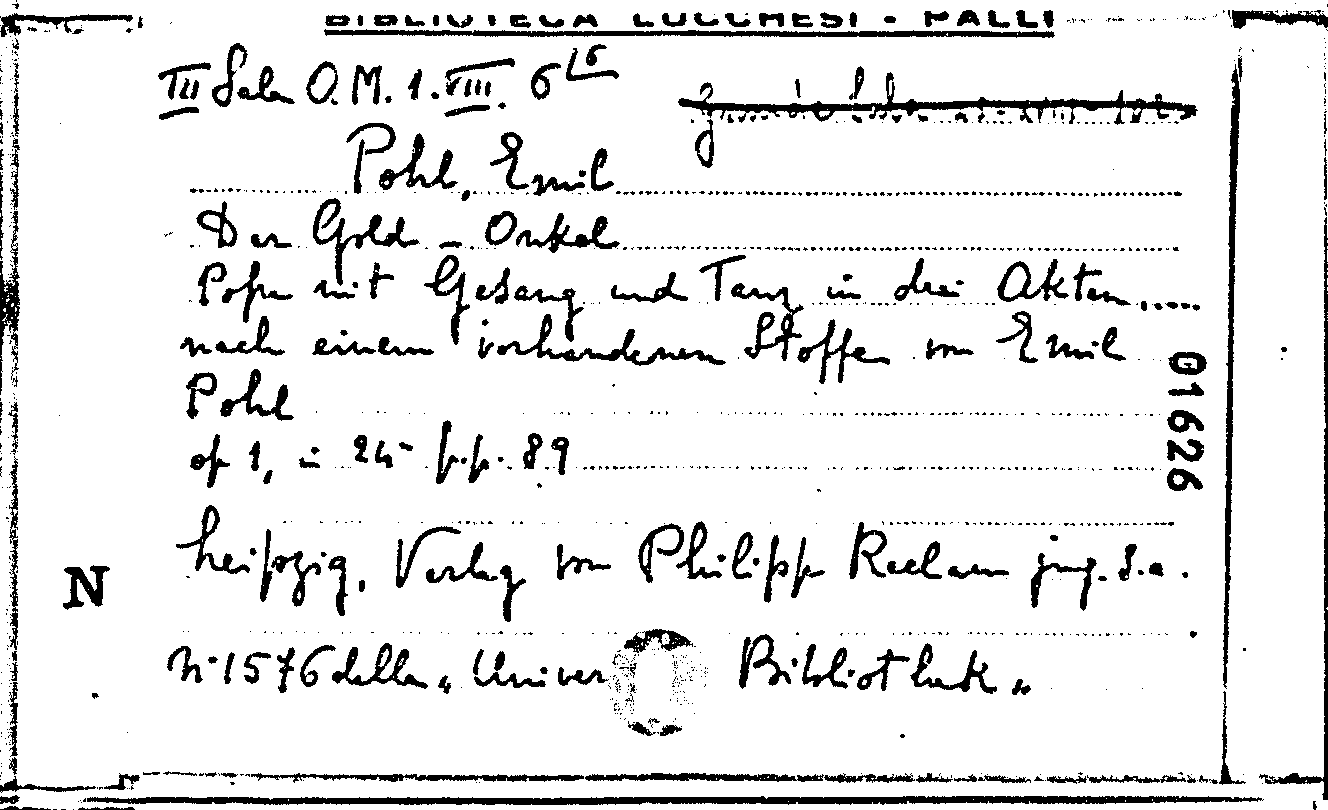 BIBLIOTECA LUCCHESI - PALLI
III Sala O.M. 1. VIII. 6 16
Pohl, Emil
Der Gold - Onkel
Posse mit Gesang und Tanz in drei Akten.....
nach einem vorhandenen Stoffe von Emil
Pohl
of 1, in 24° p.p. 89
01626
Leipzig, Verlag von Philipp Reclam jung. s.a.
N
N. 1576 della „ Univer Bibliothek „